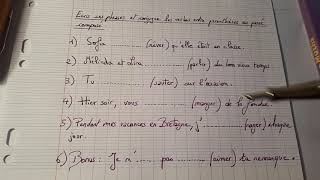 Écris ces phrases et conjugue les verbes entre parenthèses au passé
composé
1) Sofia .......... (rêver) qu'elle était en classe.
2) Mélinda et Lina .......... (parler) du bon vieux temps
3) Tu .......... (sauter) sur l'occasion.
4) Hier soir, vous .......... (manger) de la fondue.
5) Pendant mes vacances en Bretagne, j' ..... (nager) chaque
jour.
6) Bonus : Je n' ..... pas .......... (aimer) ta remarque.